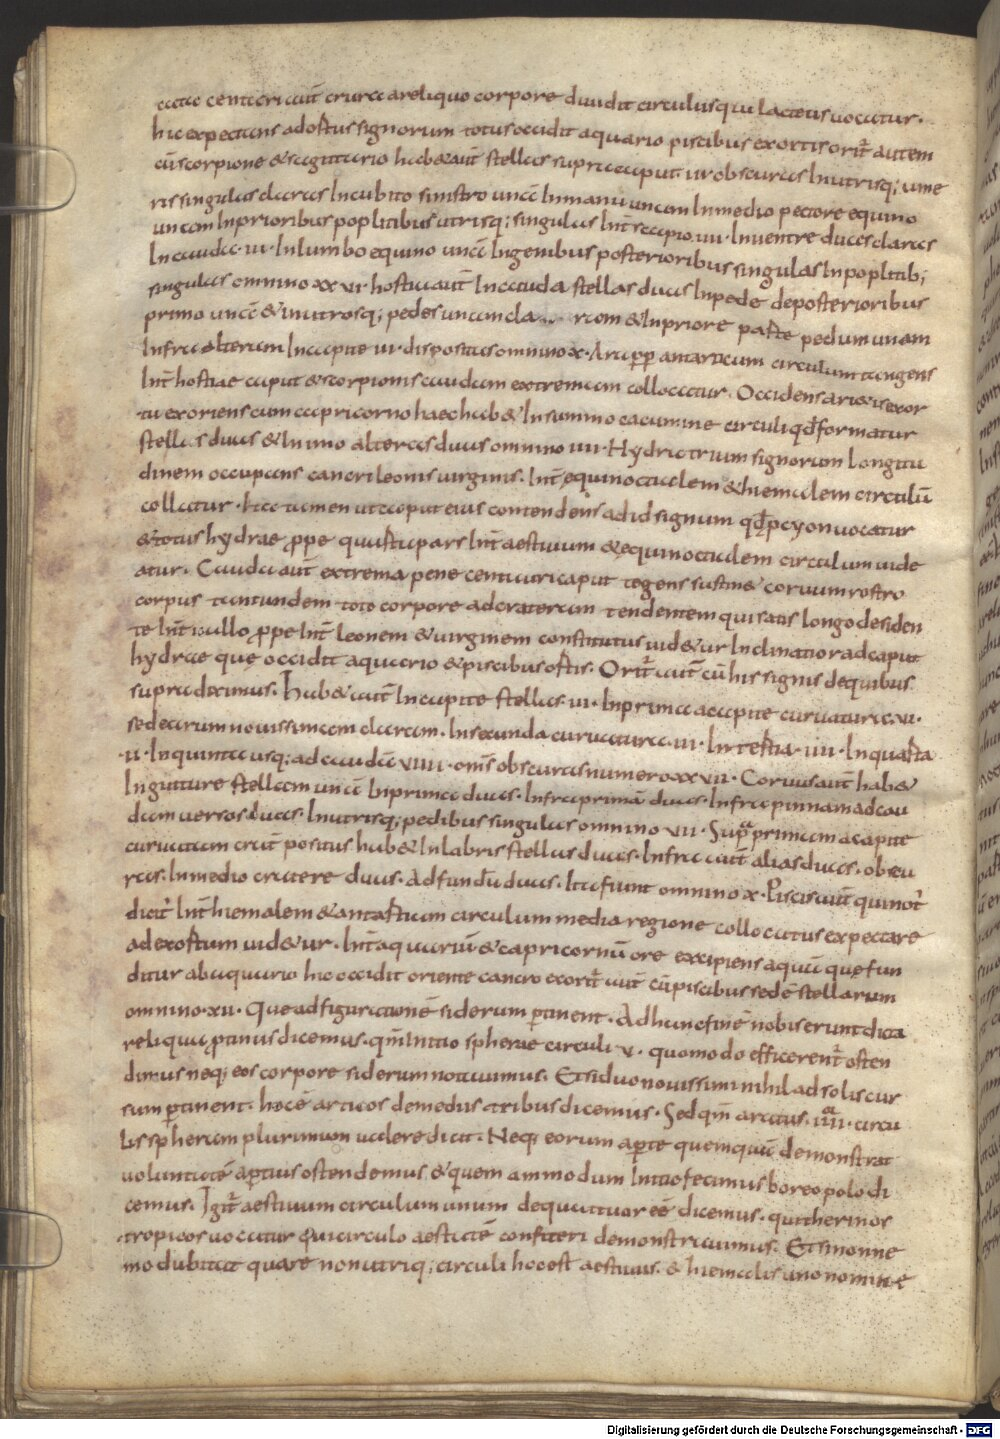 autē centauri aut crura a reliquo corpore diuidit circulus qui lacteus uocatur.
hic expectans ad ortus signorum totus occidit aquario piscibus exortis orit autem
cū scorpione & sagittario habet aut stellas supra caput iii obscuras In utrisq; ume
ris singulas claras In cubito sinistro unā In manu unam In medio pectore equino
unam In prioribus poplitibus utrisq; singulas Int scapio iiii. In uentre duas claras
In cauda iii. In lumbo equino unā In genibus posterioribus singulas In poplitib;
singulas omnino xxvi hostia aut In cauda stellas duas In pede de posterioribus
primo unā & In utrosq; pedes unam cla ram & In priore parte pedum unam
Infra alteram In capite iii. dispositas omnino x. Ara ppe antarticum circulum tangens
Int hostiae caput & scorpionis caudam extremam collocatur. Occidens arietis exor
tu exoriens cum capricorno haec habet In summo cacumine circuli qđ formatur
stellas duas & In imo alteras duas omnino iiii. Hydra trium signorum longitu
dinem occupans cancri leonis uirginis. Int equinoctialem & hiemalem circulū
collatur. Ita tamen ut caput eius contendens ad id signum qđ pcyon uocatur
& totius hydrae ppe quarta pars Int aestiuum & equinoctialem circulum uide
atur. Cauda aut extrema pene centauri caput tegens sustinet coruum rostro
corpus tuntundem toto corpore ad craterem tendentem qui satis longo desiden
te Interuallo ppe Int leonem & uirginem constitutus uidetur Inclinatior ad caput
hydrae que occidit aquario & piscibus ortis. Orit aut cū his signis de quibus
supra diximus. Habet aut In capite stellas iii. In prima a capite curuatura vi.
sed earum nouissimam claram. In secunda curuatura iii. In tertia iiii. In quarta
ii. In quinta usq; ad caudā viiii. omīs obscuras numero xxvii. Coruus aut habet
In gutture stellam unā In prima duas. Infra primā duas. Infra pinnam ad cau
dam uersos duas. In utrisq; pedibus singulas omnino vii. Supra primam a capite
curuatuam crat positus habet In labris stellas duas. Infra aut alias duas. obscu
ras. In medio cratere duas. Ad fundū duas. Ita fiunt omnino x. Piscis aut qui not
dicit Int hiemalem & antarticum circulum media regione collocatus expectare
ad exortum uidetur. Int aquariū & capricornū ore excipiens aquā que fun
ditur ab aquario hic occidit oriente cancro exorit aut cū piscibus sed ē stellarum
omnino xii. Que ad figurationē siderum ptinent. Ad hunc finē nobis erunt dicta
reliqua ptinus dicemus. qm Initio spherae circuli v. quomodo efficerent osten
dimus neq; eos corpore siderum notauimus. Et si duo nouissimi nihil ad solis cur
sum ptinent. hoc ē articos de mediis tribus dicemus. Sed qm aratus iiii. circu
lis spheram plurimum ualere dicit. Neq; eorum apte quemquā demonstrat
uoluntatē aptius ostendemus & quem ammodum Initio fecimus boreo polo di
cemus. Igit aestiuum circulum unum de quattuor eē dicemus. qui therinos
tropicos uocatur qui circulo aestatē confiteri demonstrauimus. Et si nonne
mo dubitat quare non utriq; circuli hoc est aestiuus. & hiemalis uno nomine
Digitalisierung gefördert durch die Deutsche Forschungsgemeinschaft - DFG